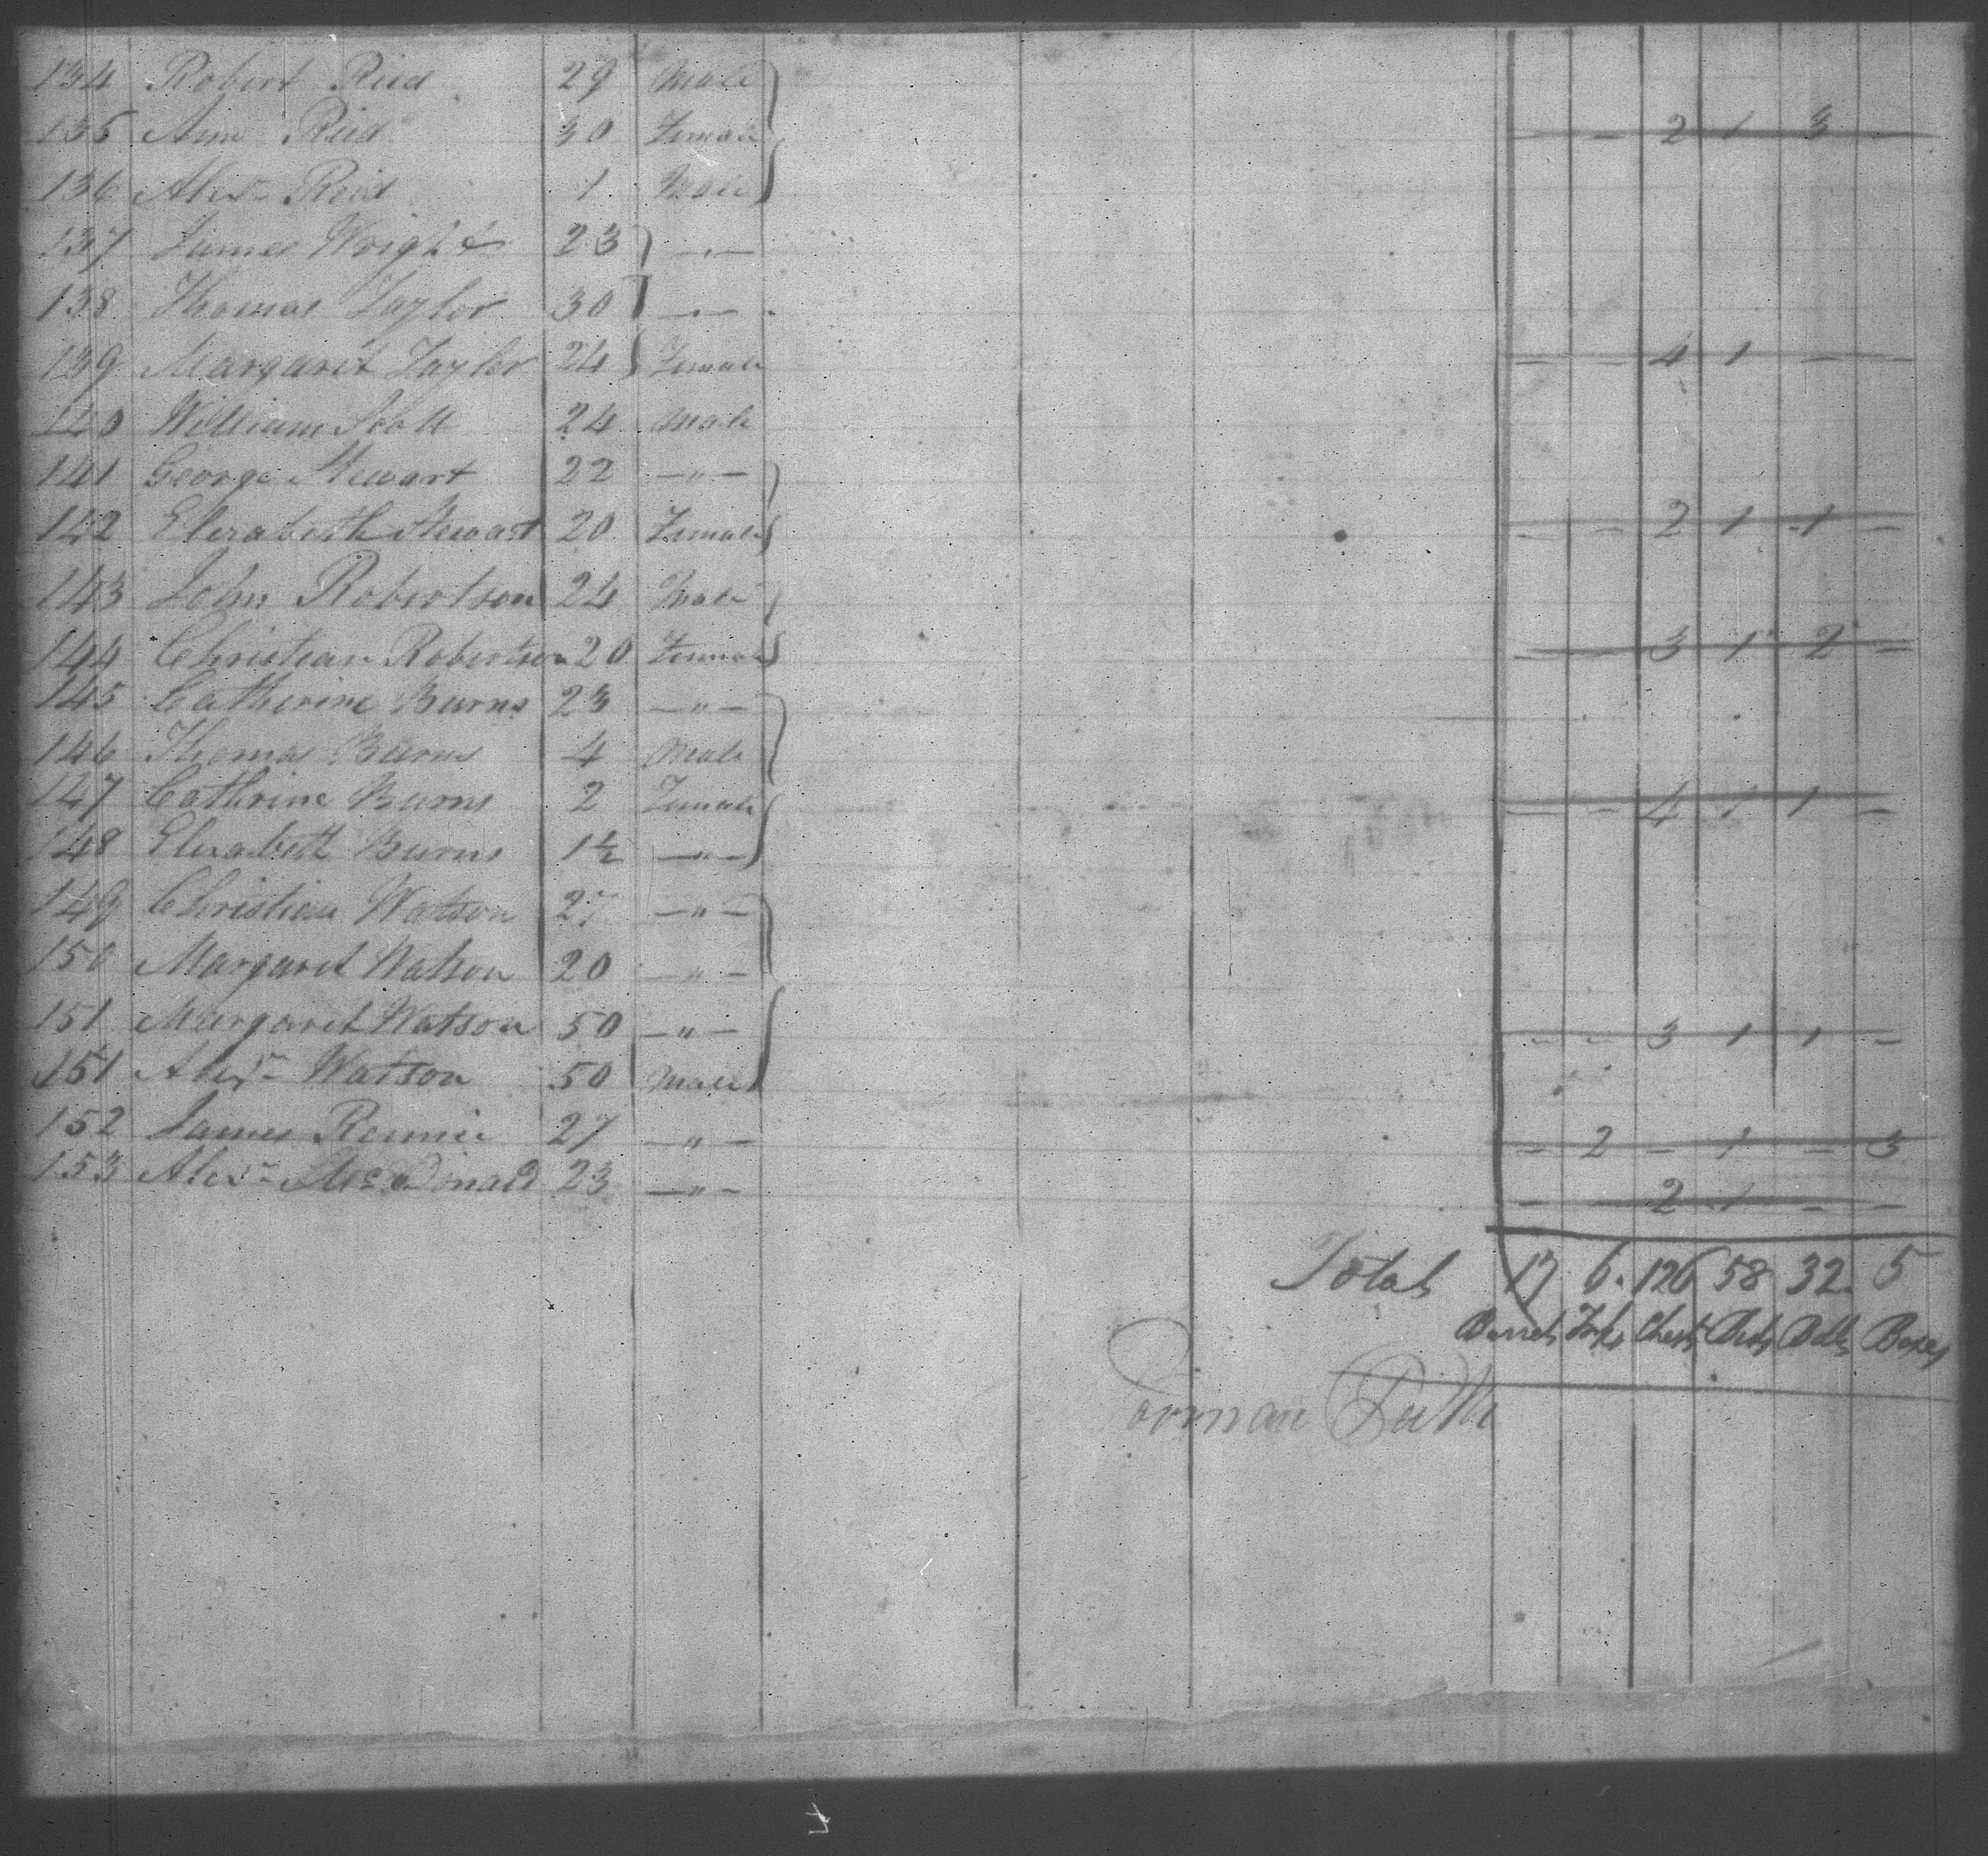 134 Robert Reid 29 Male
135 Ann Reid 30 Female - - 2 1 3 -
136 Alexr Reid 1 Male
137 James Wright 23 — " —
138 Thomas Taylor 30 — " —
139 Margaret Taylor 24 Female - - 4 1 - -
140 William Scott 24 Male
141 George Stewart 22 — " —
142 Elizabeth Stewart 20 Female - - 2 1 1 -
143 John Robertson 24 Male
144 Christian Robertson 20 Female - - 3 1 2 -
145 Catherine Burns 23 — " —
146 Thomas Burns 4 Male
147 Cathrine Burns 2 Female - - 4 1 1 -
148 Elizabeth Burns 1½ — " —
149 Christian Watson 27 — " —
150 Margaret Watson 20 — " —
151 Margaret Watson 50 — " — - - 3 1 1 -
151 Alexr Watson 50 Male
152 James Rennie 27 — " — - 2 - 1 - 3
153 Alexr McDonald 23 — " — - 2 1 - -
Total 17 6 126 58 32 5
Barrels Chests Beds Boxes